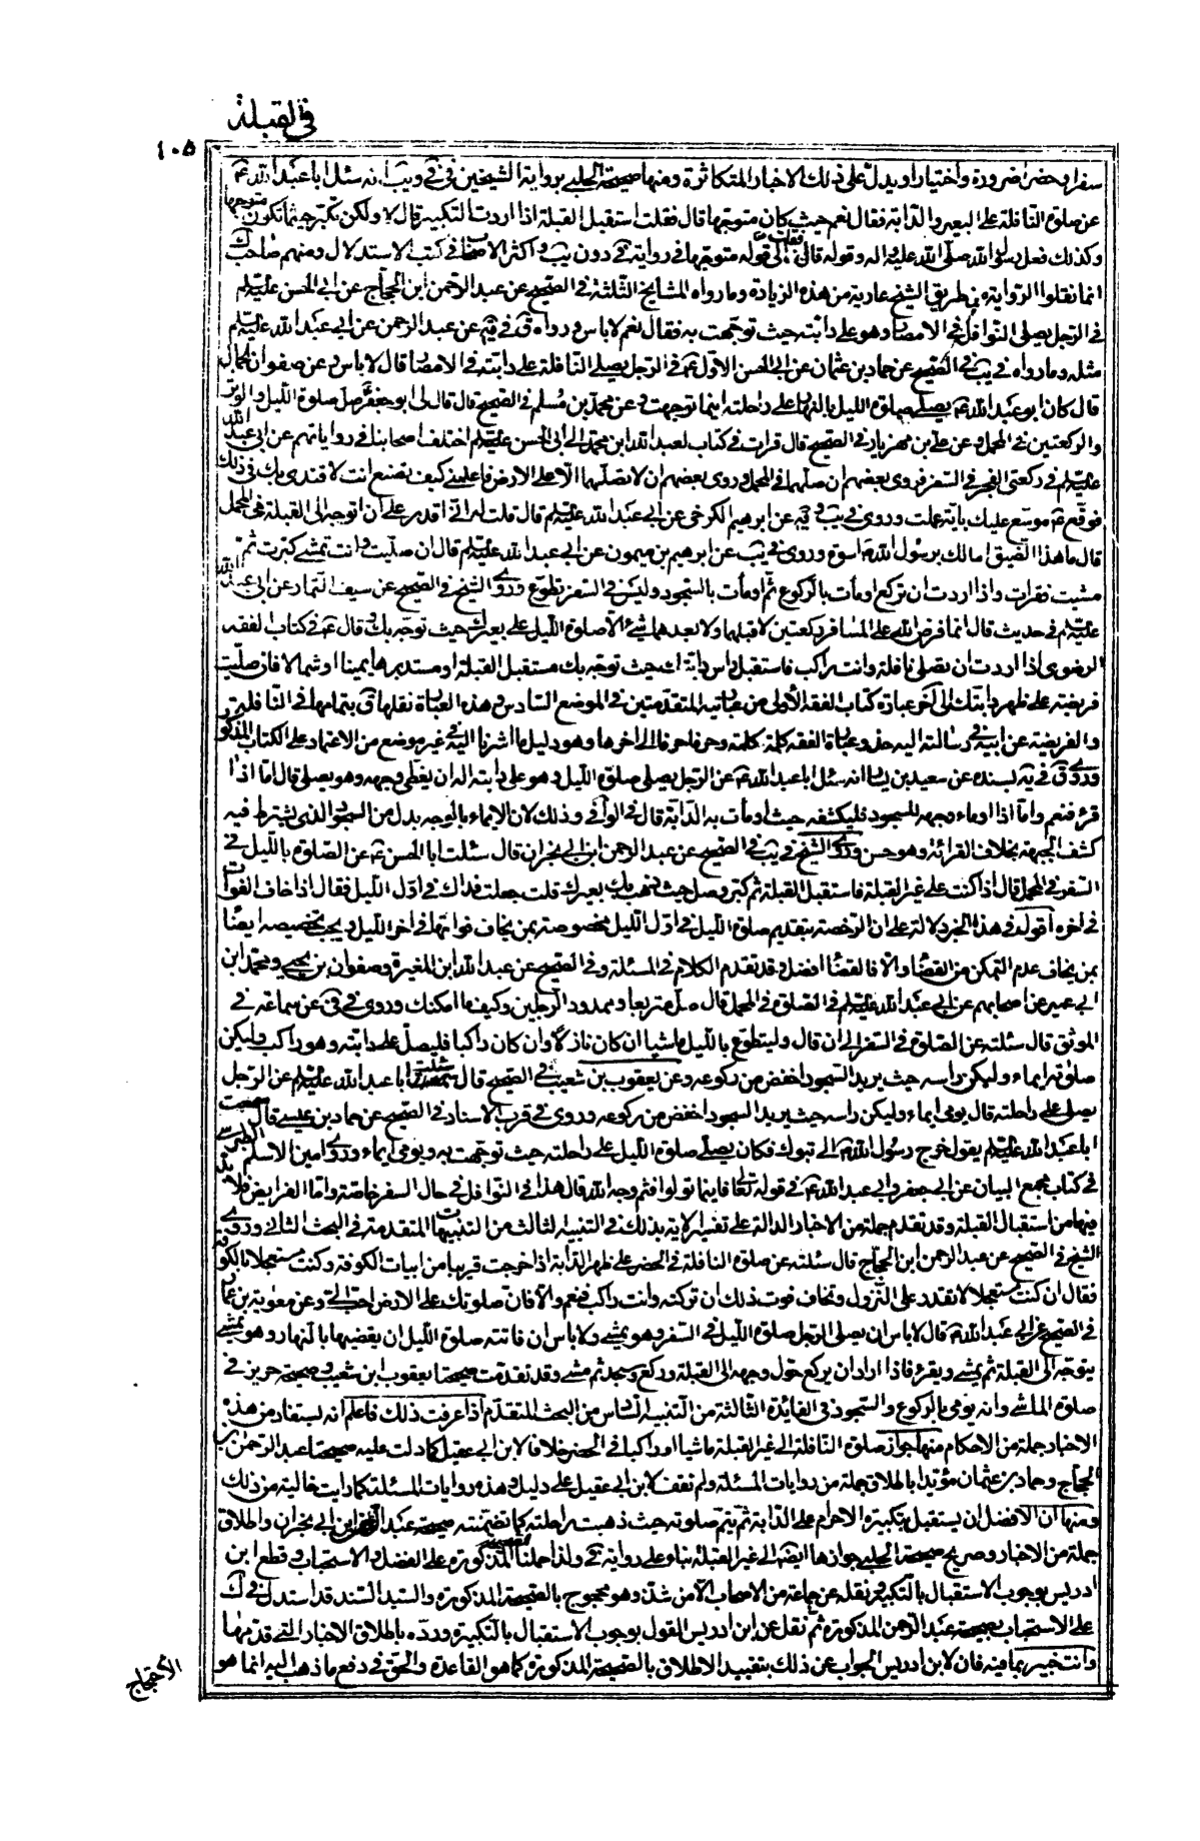 في القبلة
١٠٥
سفرا وحضرا ضرورة واختيارا ويدل على ذلك الاخبار المتكاثرة ومنها صحيحة الحلبي برواية الشيخين في في ويب انه سئل ابا عبد الله ع
عن صلوة النافلة على البعير والدابة فقال نعم حيث كان متوجها قال فقلت استقبل القبلة اذا اردت التكبير قال لا ولكن تكبر حيثما تكون متوجها
وكذلك فعل رسول الله صلى الله عليه واله وقوله قال فقلت الى قوله متوجها في رواية في دون يب واكثر الاصحاب في كتب الاستدلال ومنهم صاحب ك
انما نقلوا الرواية من طريق الشيخ عارية من هذه الزيادة وما رواه المشايخ الثلثة في الصحيح عن عبد الرحمن ابن الحجاج عن ابي الحسن عليه السلم
في الرجل يصلي النوافل في الامصار وهو على دابته حيث توجهت به فقال نعم لا باس ورواه في في عن عبد الرحمن عن ابي عبد الله عليه السلم
مثله وما رواه في يب في الصحيح عن حماد بن عثمان عن ابي الحسن الاول ع في الرجل يصلي النافلة على دابته في الامصار قال لا باس وعن صفوان الجمال
قال كان ابو عبد الله ع يصلي صلوة الليل بالنهار على راحلته اينما توجهت وعن محمد بن مسلم في الصحيح قال قال لي ابو جعفر ع صل صلوة الليل والوتر
والركعتين في المحمل وعن علي بن مهزيار في الصحيح قال قرات في كتاب لعبد الله ابن محمد الى ابي الحسن عليه السلم اختلف اصحابنا في رواياتهم عن ابي عبد الله
عليه السلم في ركعتي الفجر في السفر فروى بعضهم ان صلهما في المحمل وروى بعضهم ان لا تصلهما الا على الارض فاعلمني كيف تصنع انت لاقتدي بك في ذلك
فوقع ع موسع عليك باية عملت وروى في يب ويه عن ابرهيم الكرخي عن ابي عبد الله عليه السلم قال قلت له اني اقدر على ان اتوجه الى القبلة في المحمل
قال ما هذا الضيق اما لك برسول الله ص اسوة وروى في يب عن ابرهيم بن ميمون عن ابي عبد الله عليه السلم قال ان صليت وانت تمشي كبرت ثم
مشيت فقرات واذا اردت ان تركع اومات بالركوع ثم اومات بالسجود وليس في السفر تطوع وروى الشيخ في الصحيح عن سيف التمار عن ابي عبد الله
عليه السلم في حديث قال انما فرض الله على المسافر ركعتين لا قبلهما ولا بعدهما شئ الا صلوة الليل على بعيرك حيث توجه بك وقال ع في كتاب الفقه
الرضوي اذا اردت ان تصلي نافلة وانت راكب فاستقبل راس دابتك حيث توجه بك مستقبل القبلة او مستدبرها يمينا او شمالا فان صليت
فريضة على ظهر دابتك الى اخر عبارة كتاب الفقه الاولى من عبارتيه المتقدمتين في الموضع السادس وهذه العبارة نقلها ق بتمامها في النافلة
والفريضة عن ابيه في رسالته اليه حذو عبارة الفقه كلمة كلمة وحرفا حرفا الى اخرها وهو دليل ما اشرنا اليه في غير موضع من الاعتماد على الكتاب المذكور
وروى ق في يه بسنده عن سعيد بن يسار انه سئل ابا عبد الله ع عن الرجل يصلي صلوة الليل وهو على دابته اله ان يغطي وجهه وهو يصلي قال اما اذا
قرء فنعم واما اذا اوماء بوجهه للسجود فليكشفه حيث اومات به الدابة قال في الوافي وذلك لان الايماء بالوجه بدل من السجود الذي يشترط فيه
كشف الجبهة بخلاف القرائة وهو حسن وروى الشيخ في يب في الصحيح عن عبد الرحمن ابن ابي نجران قال سئلت ابا الحسن ع عن الصلوة بالليل في
السفر في المحمل قال اذا كنت على غير القبلة فاستقبل القبلة ثم كبر وصل حيث ذهب بك بعيرك قلت جعلت فداك في اول الليل فقال اذا خاف الفوات
في اخره اقول في هذا الخبر دلالة على ان الرخصة بتقديم صلوة الليل في اول الليل مخصوصة بمن يخاف فواتها في اخر الليل ويجب تخصيصه ايضا
بمن يخاف عدم التمكن من القضاء والا فالقضاء افضل وقد تقدم الكلام في المسئلة وفي الصحيح عن عبد الله ابن المغيرة وصفوان بن يحيى ومحمد ابن
ابي عمير عن اصحابهم عن ابي عبد الله عليه السلم في الصلوة في المحمل قال صل متربعا وممدود الرجلين وكيف ما امكنك وروى في في عن سماعة في
الموثق قال سئلته عن الصلوة في السفر الى ان قال وليتطوع بالليل ما شاء ان كان نازلا وان كان راكبا فليصل على دابته وهو راكب وليكن
صلوته ايماء وليكن راسه حيث يريد السجود اخفض من ركوعه وعن يعقوب بن شعيب في الصحيح قال سئلت ابا عبد الله عليه السلم عن الرجل
يصلي على راحلته قال يومي ايماء وليكن راسه حيث يريد السجود اخفض من ركوعه وروى في قرب الاسناد في الصحيح عن حماد بن عيسى قال سمعت
ابا عبد الله عليه السلم يقول خرج رسول الله ص الى تبوك فكان يصلي صلوة الليل على راحلته حيث توجهت به ويومي ايماء وروى امين الاسلم الطبرسي
في كتاب مجمع البيان عن ابي جعفر وابي عبد الله ع في قوله تعالى فاينما تولوا فثم وجه الله قال هذا في النوافل في حال السفر خاصة واما الفرايض فلا بد
فيها من استقبال القبلة وقد تقدم جملة من الاخبار الدالة على تفسير الاية بذلك في التنبيه الثالث من التنبيهات المتقدمة في البحث الثاني وروى
الشيخ في الصحيح عن عبد الرحمن ابن الحجاج قال سئلته عن صلوة النافلة في الحضر على ظهر الدابة اذا خرجت قريبا من ابيات الكوفة وكنت مستعجلا بالكوفة
فقال ان كنت مستعجلا لا تقدر على النزول وتخاف فوت ذلك ان تركته وانت راكب فنعم والا فان صلوتك على الارض احب الي وعن معوية بن عمار
في الصحيح عن ابي عبد الله ع قال لا باس ان يصلي الرجل صلوة الليل في السفر وهو يمشي ولا باس ان فاتته صلوة الليل ان يقضيها بالنهار وهو يمشي
يتوجه الى القبلة ثم يمشي ويقرء فاذا اراد ان يركع حول وجهه الى القبلة وركع وسجد ثم مشى وقد تقدمت صحيحة يعقوب ابن شعيب وصحيحة حريز في
صلوة الماشي وانه يومي بالركوع والسجود في الفائدة الثالثة من التنبيه السادس من البحث المتقدم اذا عرفت ذلك فاعلم انه يستفاد من هذه
الاخبار جملة من الاحكام منها جواز صلوة النافلة الى غير القبلة ماشيا او راكبا في الحضر خلافا لابن ابي عقيل كما دلت عليه صحيحتا عبد الرحمن بن
الحجاج وحماد بن عثمان مؤيدا باطلاق جملة من روايات المسئلة ولم نقف لابن ابي عقيل على دليل وهذه روايات المسئلة كما رايت خالية من ذلك
ومنها ان الافضل ان يستقبل بتكبيرة الاحرام على الدابة ثم يتم صلوته حيث ذهبت راحلته كما تضمنته صحيحة عبد الرحمن ابن ابي نجران واطلاق
جملة من الاخبار وصريح صحيحة الحلبي جوازها ايضا الى غير القبلة بناء على رواية في ولذا حملنا الصحيحة المذكورة على الفضل والاستحباب وقطع ابن
ادريس بوجوب الاستقبال بالتكبيرة ونقله عن جماعة من الاصحاب الا من شذ وهو محجوج بالصحيحة المذكورة والسيد السند قد استدل في ك
على الاستحباب بصحيحة عبد الرحمن المذكورة ثم نقل عن ابن ادريس القول بوجوب الاستقبال بالتكبيرة ورده باطلاق الاخبار التي قدمها
وانت خبير بما فيه فان لابن ادريس الجواب عن ذلك بتقييد الاطلاق بالصحيحة المذكورة كما هو القاعدة والحق في دفع ما ذهب اليه انما هو
الاحتجاج